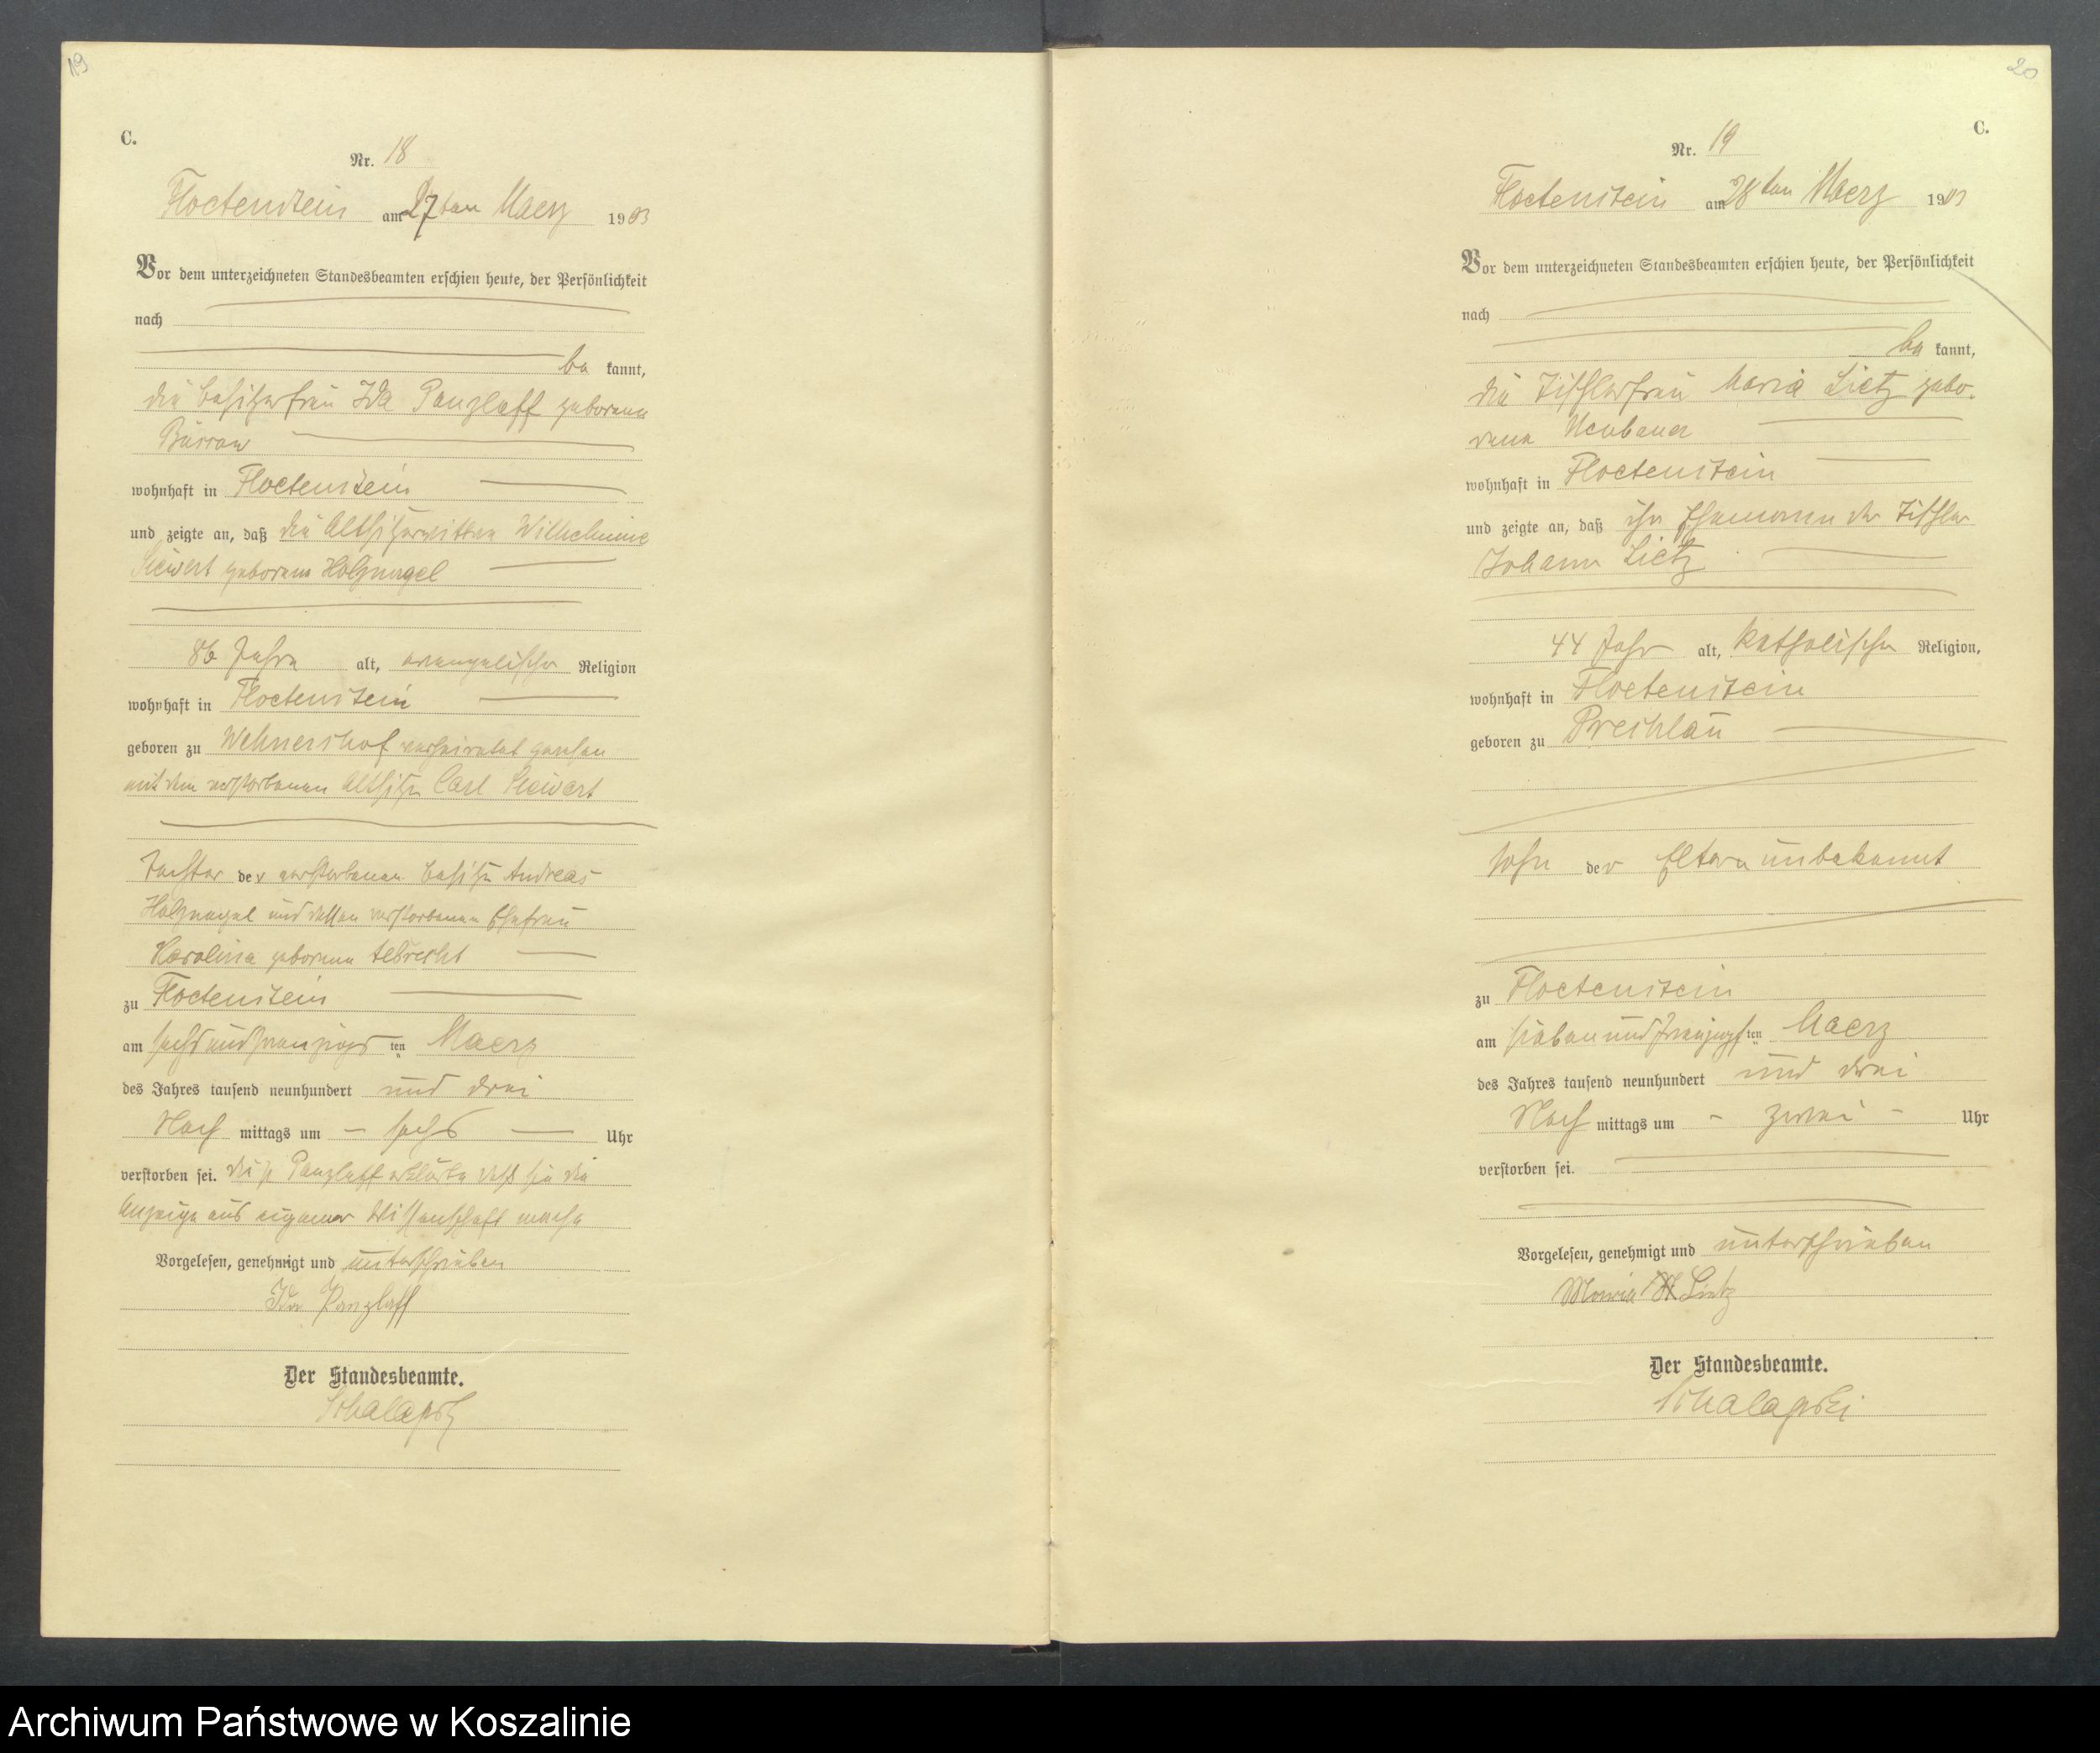 19
C.
Nr. 18
Floetenstein am 27ten Maerz 1903
Vor dem unterzeichneten Standesbeamten erschien heute, der Persönlichkeit
nach
be kannt,
die Besitzerfrau Ida Panzlaff geborene
Burrow
wohnhaft in Floetenstein
und zeigte an, daß die Altsitzerwittwe Wilhelmine
Siewert geborene Holznagel
86 Jahre alt, evangelischer Religion
wohnhaft in Floetenstein
geboren zu Wehnershof verheiratet gewesen
mit dem verstorbenen Altsitzer Carl Siewert
Tochter der verstorbenen Besitzer Andreas
Holznagel und dessen verstorbenen Ehefrau
Karoline geborene
zu Floetenstein
am sechsundzwanzigsten Maerz
des Jahres tausend neunhundert und drei
Nach mittags um sechs Uhr
verstorben sei. Die p Panzlaff erklärte daß sie die
Anzeige aus eigener Wissenschaft mache
Vorgelesen, genehmigt und unterschrieben
Ida Panzlaff
Der Standesbeamte.
20
C.
Nr. 19
Floetenstein am 28ten Maerz 1903
Vor dem unterzeichneten Standesbeamten erschien heute, der Persönlichkeit
nach
be kannt,
die Tischlerfrau Maria Lietz gebo-
rene Neubauer
wohnhaft in Floetenstein
und zeigte an, daß ihr Ehemann der Tischler
Johann Lietz
44 Jahr alt, katholischer Religion,
wohnhaft in Floetenstein
geboren zu Prechlau
Sohn der Eltern unbekannt
zu Floetenstein
am siebenundzwanzigsten Maerz
des Jahres tausend neunhundert und drei
Nach mittags um - zwei - Uhr
verstorben sei.
Vorgelesen, genehmigt und unterschrieben
Maria Lietz
Der Standesbeamte.
Schalapski
Archiwum Państwowe w Koszalinie